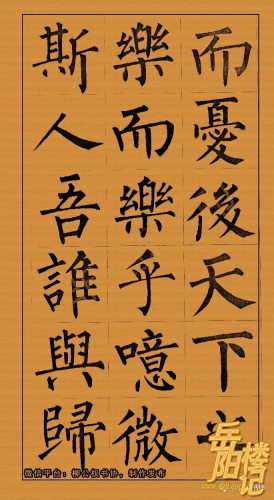 而憂後天下
樂而樂乎噫微
斯人吾誰與歸
微信平台：柳公权书协，制作发布
岳阳楼记